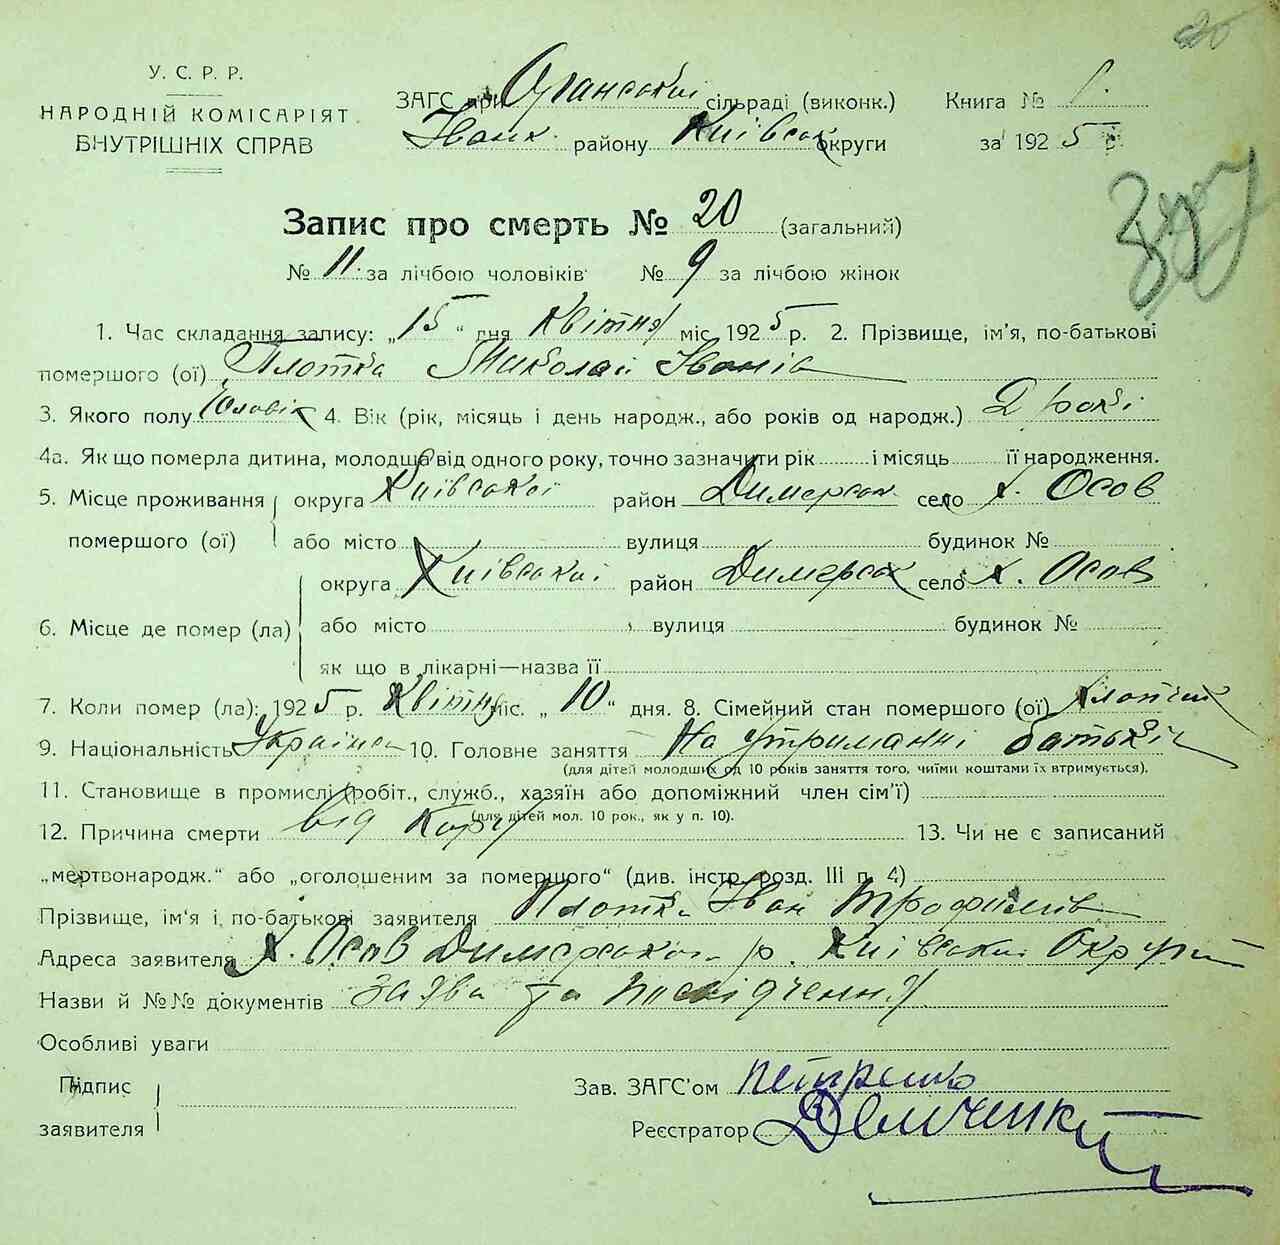 20
У. С. Р. Р.
НАРОДНІЙ КОМІСАРІЯТ
ВНУТРІШНІХ СПРАВ
ЗАГС при Оранської сільраді (виконк.) Книга №
Іванк. району Київськ округи за 1925
Запис про смерть № 20 (загальний)
№ 11 за лічбою чоловіків № 9 за лічбою жінок
1. Час складання запису: „15“ дня Квітня міс. 1925 р. 2. Прізвище, ім'я, по-батькові
помершого (ої) Плотка Миколай Іванів
3. Якого полу Чоловік 4. Вік (рік, місяць і день народж., або років од народж.) 2 роки
4а. Як що померла дитина, молодша від одного року, точно зазначити рік і місяць її народження.
5. Місце проживання округа Київської район Димерськ село х. Осов
помершого (ої) або місто вулиця будинок №
округа Київської район Димерськ село х. Осов
6. Місце де помер (ла) або місто вулиця будинок №
як що в лікарні—назва її
7. Коли помер (ла): 1925 р. Квітня міс. „10“ дня. 8. Сімейний стан помершого (ої)
9. Національність 10. Головне заняття На утриманні батьків
(для дітей молодших од 10 років заняття того, чиїми коштами їх втримується).
11. Становище в промислі (робіт., служб., хазяїн або допоміжний член сім'ї)
(для дітей мол. 10 рок., як у п. 10).
12. Причина смерти від кору 13. Чи не є записаний
„мертвонародж.“ або „оголошеним за помершого“ (див. інстр. розд. III п. 4)
Прізвище, ім'я і по-батькові заявителя Плотка Іван Трофимів
Адреса заявителя х. Осов Димерського р. Київської Округи
Назви й №№ документів Заява та посвідчення
Особливі уваги
Підпис Зав. ЗАГС'ом Петренко
заявителя Реєстратор Демченко